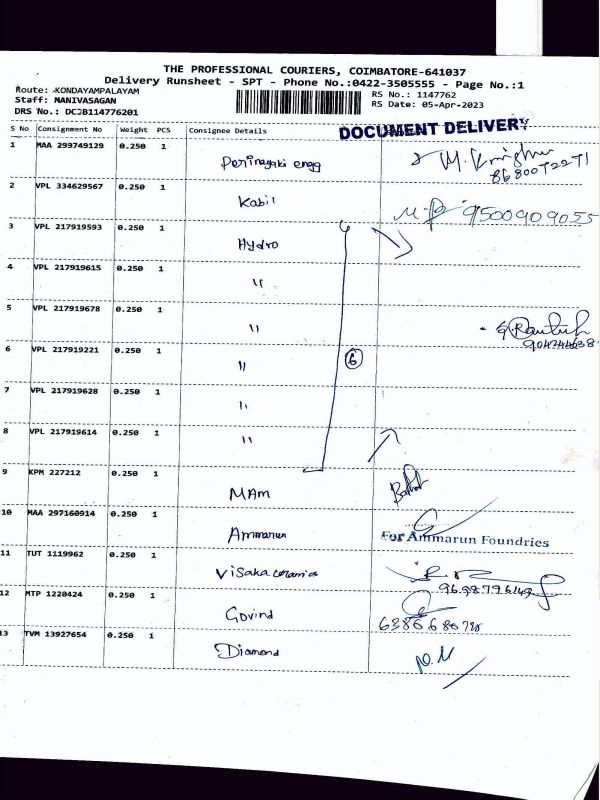 THE PROFESSIONAL COURIERS, COIMBATORE-641037
Delivery Runsheet - SPT - Phone No.:0422-3505555 - Page No.:1
Route: -KONDAYAMPALAYAM
Staff: MANIVASAGAN
DRS No.: DCJB114776201
RS No.: 1147762
RS Date: 05-Apr-2023
S No Consignment No Weight PCS Consignee Details
DOCUMENT DELIVERY
1 MAA 299749129 0.250 1
2 VPL 334629567 0.250 1 Kabil 9500909055
3 VPL 217919593 0.250 1 Hydro
4 VPL 217919615 0.250 1 "
5 VPL 217919678 0.250 1 "
6 VPL 217919221 0.250 1 "
6
7 VPL 217919628 0.250 1 "
8 VPL 217919614 0.250 1 "
9 KPM 227212 0.250 1 MAM
10 MAA 297160914 0.250 1 Ammarun
For Ammarun Foundries
11 TUT 1119962 0.250 1 Visaka ceramics
12 MTP 1220424 0.250 1 Govind
13 TVM 13927654 0.250 1 Diamond